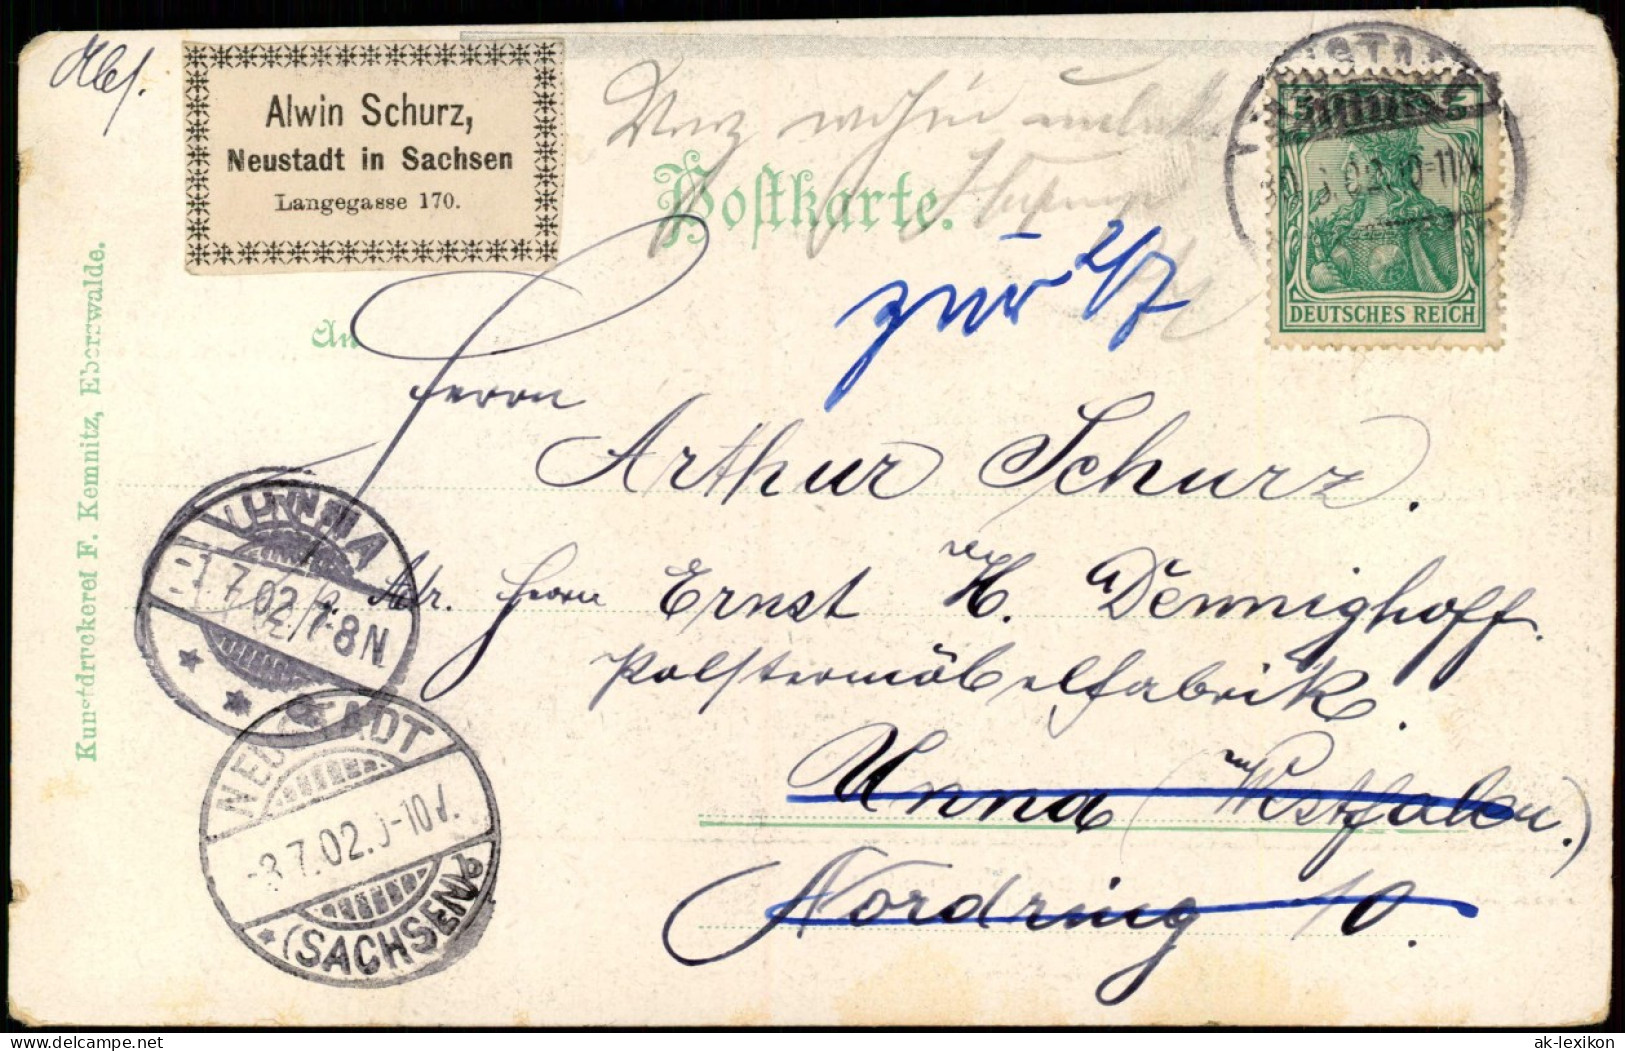 Abs.
Alwin Schurz,
Neustadt in Sachsen
Langegasse 170.
Postkarte.
zur 2/7
DEUTSCHES REICH
An
Herrn
Arthur Schurz.
Adr. Herrn Ernst H. Dennighoff.
Polstermöbelfabrik.
Unna (Westfalen.)
Nordring 10.
UNNA
-1.7.02.7-8N
NEUSTADT
-3.7.02.
(SACHSEN)
Kunstdruckerei F. Kemnitz, Eberswalde.
ak-lexikon